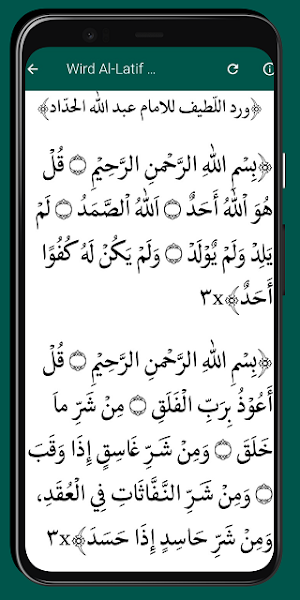 Wird Al-Latif ...
﴿ورد اللّطيف للامام عبد الله الحدّاد﴾
﴿بِسْمِ اللهِ الرَّحْمنِ الرَّحِيْمِ ۝ قُلْ
هُوَ اللهُ أَحَدٌ ۝ اَللهُ الصَّمَدُ ۝ لَمْ
يَلِدْ وَلَمْ يُوْلَدْ ۝ وَلَمْ يَكُنْ لَهُ كُفُوًا
أَحَدٌ﴾ ٣x
﴿بِسْمِ اللهِ الرَّحْمنِ الرَّحِيْمِ ۝ قُلْ
أَعُوْذُ بِرَبِّ الْفَلَقِ ۝ مِنْ شَرِّ ماَ
خَلَقَ ۝ وَمِنْ شَرِّ غَاسِقٍ إِذَا وَقَبَ
۝ وَمِنْ شَرِّ النَّفَّاثَاتِ فِي الْعُقَدِ،
وَمِنْ شَرِّ حَاسِدٍ إِذَا حَسَدَ﴾ ٣x